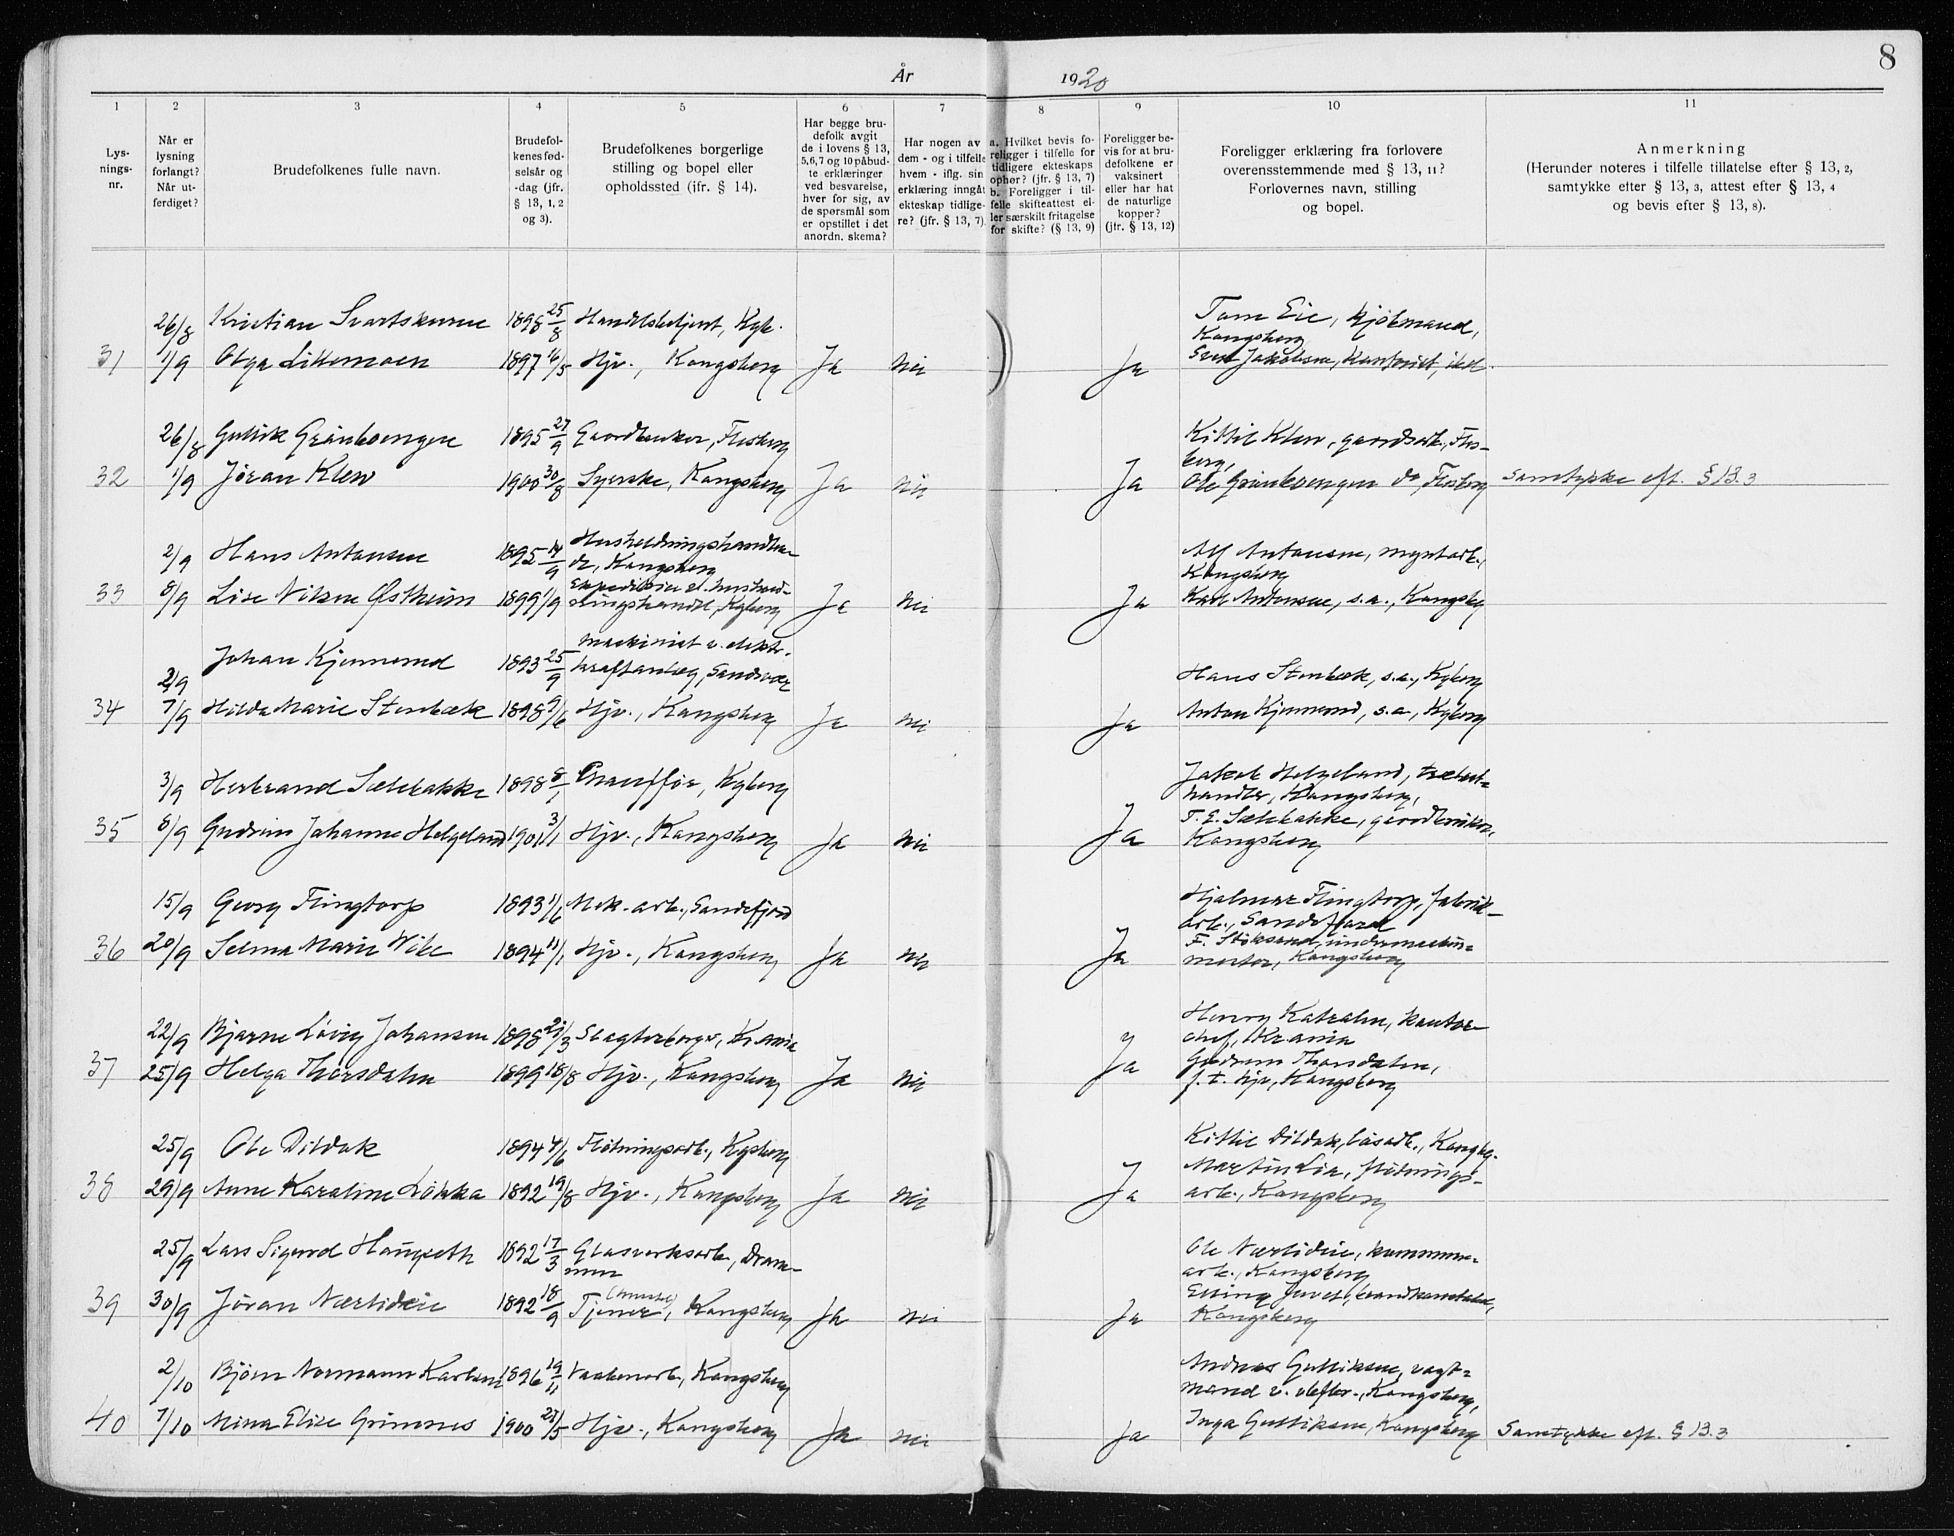 8
År 1920
1 2 3 4 5 6 7 8 9 10 11
Lys-
nings-
nr.
Når er
lysning
forlangt?
Når ut-
ferdiget?
Brudefolkenes fulle navn.
Brudefol-
kenes fød-
selsår og
-dag (jfr.
§ 13, 1, 2
og 3).
Brudefolkenes borgerlige
stilling og bopel eller
opholdssted (ifr. § 14).
Har begge bru-
defolk avgit
de i lovens § 13,
5,6,7 og 10 påbud-
te erklæringer
ved besvarelse,
hver for sig, av
de spørsmål som
er opstillet i det
anordn. skema?
Har nogen av
dem - og i tilfelle
hvem - iflg. sin
erklæring inngåt
ekteskap tidlige-
re? (jfr. § 13, 7)
a. Hvilket bevis fo-
religger i tilfelle for
tidligere ekteskaps
ophør? (jfr. § 13, 7)
b. Foreligger i til-
felle skifteattest el-
ler særskilt fritagelse
for skifte? (§ 13, 9)
Foreligger be-
vis for at bru-
defolkene er
vaksinert
eller har hat
de naturlige
kopper?
(jfr. § 13, 12)
Foreligger erklæring fra forlovere
overensstemmende med § 13, 11?
Forlovernes navn, stilling
og bopel.
Anmerkning
(Herunder noteres i tilfelle tillatelse efter § 13, 2,
samtykke efter § 13, 3, attest efter § 13, 4
og bevis efter § 13, 8).
26/8 Kristian 1898 25/8 Handelsbetjent, Kgb. Tom Eie, kjøbmand,
Kongsberg
31 1/9 Olga Littemoen 1897 16/5 Hjv., Kongsberg Ja Nei Ja Jakobsen, Kontorist, ibd.
26/8 Gullik Grønkvengen 1895 27/9 Gaardbruker, Flesberg Kittil Klev, gaardsarb., Fles-
berg,
32 1/9 Jøran Klev 1900 30/8 Syerske, Kongsberg Ja Nei Ja Ole do, Flesberg Samtykke eft. § 13.3
2/9 Hans Antonsen 1895 14/9 Husholdningshandlen-
de, Kongsberg Alf Antonsen, myntarb.,
Kongsberg
33 8/9 Lise Nilsen Østheim 1899 1/9 Ja Nei Ja Karl Antonsen, s.a., Kongsbg
husholdningshandel, Kgberg
Johan Kjennerud 1893 25/9 maskinist v. elektr.
2/9 kraftanlæg, Sandsvær Hans Stenbæk, s.a., Kgberg
34 7/9 Hilda Marie Stenbæk 1898 9/6 Hjv., Kongsberg Ja Nei Ja Anton Kjennerud, s.a., Kgberg
3/9 Herbrand Sælebakke 1898 8/1 Chauffør, Kgberg Jakob Helgeland, trælast-
handler, Kongsberg,
35 8/9 Gudrun Johanne Helgeland 1901 3/1 Hjv., Kongsberg Ja Nei Ja T. E. Sælebakke, gaardbruker,
Kongsberg
15/9 Georg Flingtorp 1893 1/6 Mek. arb., Sandefjord Hjalmar Flingtorp, fabrik-
arb., Sandefjord
36 20/9 Selma Marie Wibe 1894 11/1 Hjv., Kongsberg Ja Nei Ja F. Stöksrud, undermaskin-
mester, Kongsberg
22/9 Bjarne Lövig Johansen 1898 21/3 Slagterborger, Kr.ania Henry, kontor-
chef, Kr.ania
37 25/9 Helga Thorsdalen 1899 18/8 Hjv., Kongsberg Ja Nei Ja Gudrun Thorsdalen,
f.t. hjv, Kongsberg
25/9 Ole Dildak 1894 4/6 Fløtningsarb., Kgsberg Kittil Dildak, løsarb., Kongbg.
Martin Lia, fløtnings-
38 29/9 Anne Karoline Løkka 1892 19/8 Hjv., Kongsberg Ja Nei Ja arb., Kongsberg
25/9 Lars Sigurd Haugseth 1892 17/3 Glasverksarb., Dram-
men Ole Nærlideie, kommune-
arb., Kongsberg
39 30/9 Jøran Nærlideie 1892 18/9 Tjener, Kongsberg Ja Nei Ja Elling Juvet, brandkonstabel,
Kongsberg
2/10 Bjørn Normann Karlsen 1896 19/11 Vaabenarb., Kongsberg Andreas Gulliksen, vagt-
mand v. , Kongsberg,
40 7/10 Mina Elise Grimnes 1900 21/5 Hjv., Kongsberg Ja Nei Ja Inga Gulliksen, Kongsberg Samtykke eft. § 13.3